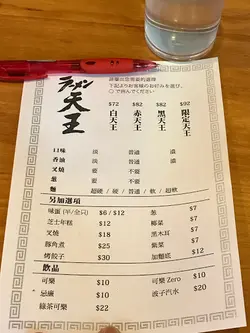 ラーメン
天王
請圈出您需要的選擇
下記よりお客様のお好みを選び、
○で囲んでください
$72 $82 $82 $92
白天王 赤天王 黑天王 限定天王
口味 淡 普通 濃
香油 淡 普通 濃
叉燒 要 不要
蔥 要 不要
麵 超硬 / 硬 / 普通 / 軟 / 超軟
另加選項
味蛋 (半/全只) $6 / $12
蔥 $7
芝士年糕 $12
椰菜 $7
叉燒 $18
黑木耳 $7
豚角煮 $25
紫菜 $7
烤餃子 $30
加麵底 $12
飲品
可樂 $10
可樂 Zero $10
忌廉 $10
波子汽水 $20
綠茶可樂 $22